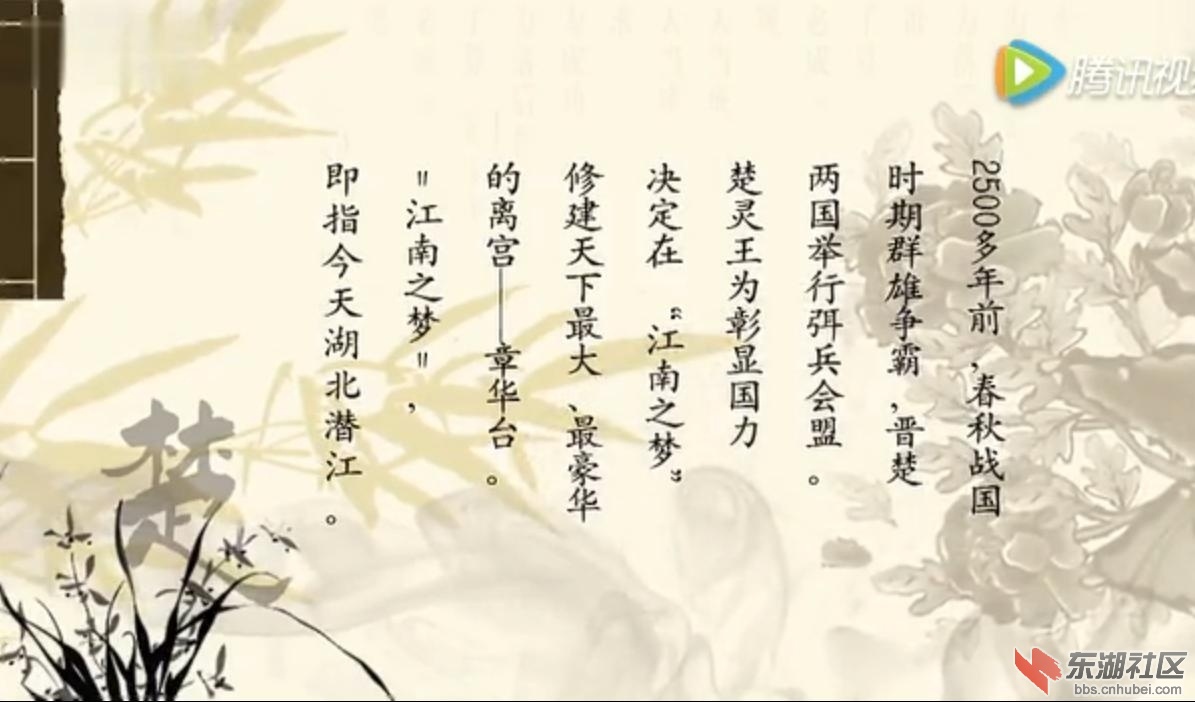 2500多年前，春秋战国
时期群雄争霸，晋楚
两国举行弭兵会盟。
楚灵王为彰显国力
决定在“江南之梦”
修建天下最大、最豪华
的离宫——章华台。
"江南之梦"，
即指今天湖北潜江。
楚
腾讯视
东湖社区
bbs.cnhubei.com